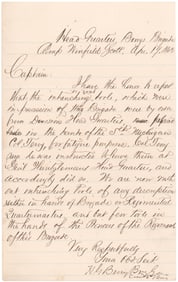 Head Quarters, Berry's Brigade
Camp Winfield Scott, Apr. 19, 1862
Captain:
I have the honor to report
that the intrenching tools, which were
in possession of this Brigade, were by order
from Division Head Quarters,
in the hands of the 3rd Michigan
Col. Terry, for fatigue purposes. Col. Terry
says he was instructed to leave them at
Genl. Heintzelman's Head Quarters, and
accordingly did so. We are now without
intrenching tools of any description
either in hands of Brigade or Regimental
Quartermasters, and but few tools in
the hands of the Pioneers of the Regiments
of this Brigade.
Very Respectfully
Your Obt. Servt.
H. G. Berry Brig. Gen.